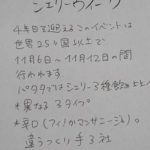 シェリーウィーク
4年目を迎えるこのイベントは
世界25ヶ国以上で
11月6日〜11月12日の間
行われます
バタタではシェリー3種飲み
*異なる3タイプ。
*辛口(フィノかマンサニージャ)。
違うつくり手3社